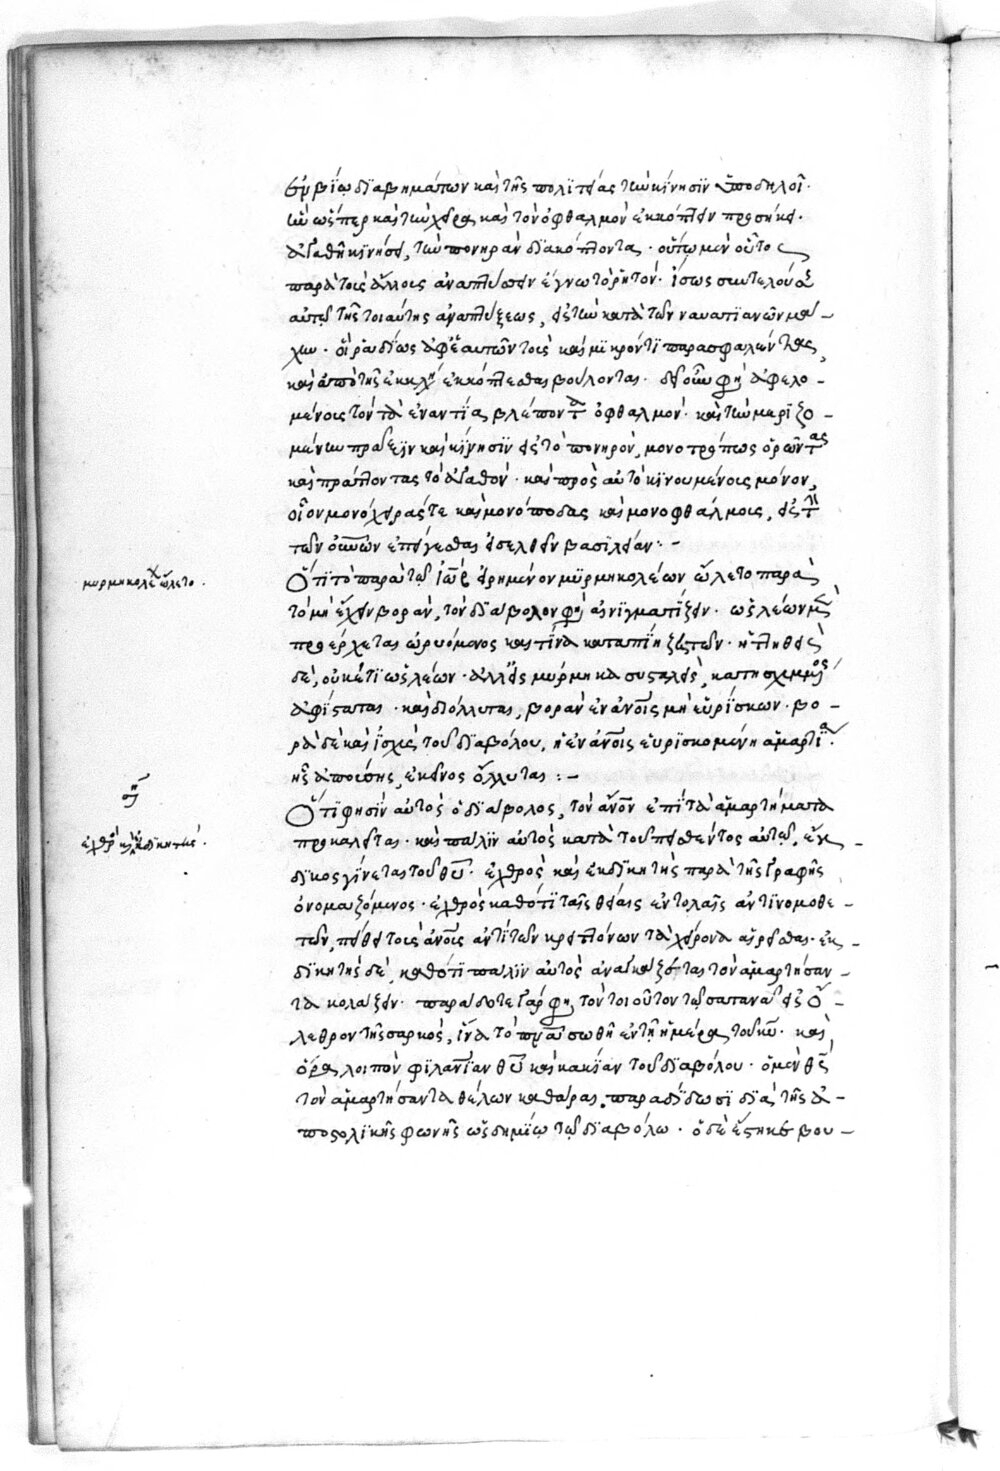 ἐν βίω διαβημάτων καὶ τῆς πολιτείας τὴν κίνησιν ὑποδηλοῖ·
ἣν ὥσπερ καὶ τὴν χεῖρα καὶ τὸν ὀφθαλμὸν ἐκκόπτειν προσῆκε·
ἀγαθῆ κινήσει, τὴν πονηρὰν διακόπτοντας· οὕπω μὲν οὕτως
παρὰ τοῖς ἄλλοις ἀναπτύσσειν ἔγνω τὸ ῥητόν· ἴσως συντελούσης
αὐτῶ τῆς τοιαύτης ἀναπτύξεως, εἰς τὴν κατὰ τῶν ναυατιανῶν μά-
χην· οἳ ῥαδίως ἀφ' ἑαυτῶν τοὺς καὶ μικρόν τι παρασφαλέντας,
καὶ ἀπὸ τῆς ἐκκλη ἐκκόπτεσθαι βούλονται· δεῖ οὖν φησὶ ἀφελο-
μένοις τὸν τὰ ἐναντία βλέποντα ὀφθαλμόν· καὶ τὴν μεριζο-
μένην πρᾶξιν καὶ κίνησιν εἰς τὸ πονηρόν, μονοτρόπως ὁρῶντας
καὶ πράττοντας τὸ ἀγαθόν· καὶ πρὸς αὐτὸ κινουμένοις μόνον,
οἷον μονόχειράς τε καὶ μονόποδας καὶ μονοφθάλμοις, εἰς τὴν
τῶν οὐνῶν ἐπείγεσθαι εἰσελθεῖν βασιλείαν:-
Ὅτι τὸ παρὰ τῶ ἰὼβ εἰρημένον μυρμηκολέων ὤλετο παρὰ
τὸ μὴ ἔχειν βοράν, τὸν διάβολον φησὶ αἰνιγματίζειν· ὡς λέων μὲν
προέρχεται ὠρυόμενος καὶ τίνα καταπίη ζητῶν· ἡττηθεὶς
δέ, οὐκέτι ὡς λέων· ἀλλ' εἰς μύρμηκα συσταλείς, κατησχυμμένος
ἀφίσταται· καὶ διόλλυται, βορὰν ἐν ἀνοις μὴ εὑρίσκων· βο-
ρὰ δὲ καὶ ἰσχὺς τοῦ διαβόλου, ἡ ἐν ἀνοις εὑρισκομένη ἁμαρτία·
ἧς ἀπούσης, ἐκεῖνος ὄλλυται:-
Ὅτι φησὶν αὐτὸς ὁ διάβολος, τὸν ἄνον ἐπὶ τὰ ἁμαρτήματα
προκαλεῖται· καὶ πάλιν αὐτὸς κατὰ τοῦ πεισθέντος αὐτῶ, ἔκ-
δικος γίνεται τοῦ θυ· ἐχθρὸς καὶ ἐκδικητὴς παρὰ τῆς γραφῆς
ὀνομαζόμενος· ἐχθρὸς καθότι ταῖς θείαις ἐντολαῖς ἀντινομοθε-
τῶν, πείθει τοὺς ἀνους ἀντὶ τῶν κρειττόνων τὰ χείρονα αἱρεῖσθαι· ἐκ-
δικητὴς δέ, καθότι πάλιν αὐτὸς ἀναγκάζεται τὸν ἁμαρτήσαν-
τα κολάζειν· παράδοτε γάρ φησι τὸν τοιοῦτον τῶ σατανᾶ εἰς ὄ-
λεθρον τῆς σαρκός, ἵνα τὸ πνα σωθῆ ἐν τῆ ἡμέρα τοῦ κυ· καὶ
ὅρα λοιπὸν φιλανίαν θυ καὶ κακίαν τοῦ διαβόλου· ὁ μὲν θς
τὸν ἁμαρτήσαντα θέλων καθάραι, παραδίδωσι διὰ τῆς ἀ-
ποστολικῆς φωνῆς ὡς δημίω τῶ διαβόλω· ὁ δὲ ἕστηκε βου-
μυρμηκολέων ὤλετο.
ση
ἐχθρὸς καὶ ἐκδικητής.